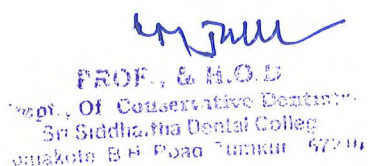 PROF., & H.O.D
Dept., Of Conservative Dentistry
Sri Siddhartha Dental Colleg
B.H. Road Tumkur